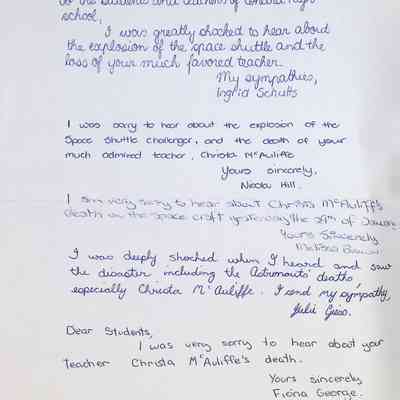 To the students and teachers of Concord High
school,
I was greatly shocked to hear about
the explosion of the space shuttle and the
loss of your much favored teacher.
My sympathies,
Ingrid Schults
I was sorry to hear about the explosion of the
Space Shuttle Challenger, and the death of your
much admired teacher, Christa McAuliffe
Yours sincerely,
Nicola Hill.
I am very sorry to hear about Christa McAuliff's
death in the space craft yesterday the 29th of January
Yours Sincerely
Melissa
I was deeply shocked when I heard and saw
the disaster including the Astronauts' deaths,
especially Christa McAuliffe. I send my sympathy,
Julie
Dear Students,
I was very sorry to hear about your
Teacher Christa McAuliffe's death.
Yours sincerely
Fiona George.